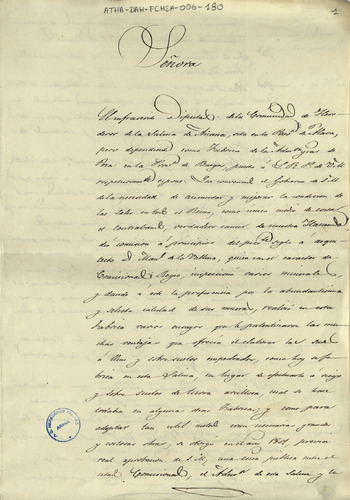 ATHA-DAH-FCHSA-006-180
1
Señora
El infrascrito Diputado de la Comunidad de Here-
deros de la Salina de Añana, sita en la Prov.ª de Alava,
pero dependiente como Fabrica de la Adm.on gral de
Poza en la Prov.ª de Burgos, puesto á L. R. P. de V. M.
respetuosamente espone: Que convencido el Gobierno de V. M.
de la necesidad de aumentar y mejorar la condicion de
las Sales en todo el Reino, como unico medio de cortar
el contrabando, verdadero cancer de nuestra Hacienda
dió comision á principios del presente siglo al arqui-
tecto D. Man.l de la Ballina, quien en el caracter de
Comisionado Regio inspeccionó varios minerales,
y dando á este la preferencia por la abundantisima
y selecta calidad de sus mueras, realizó en esta
Fabrica varios ensayos que le patentizaron las mu-
chas ventajas que ofrecia el elaborar la Sal
á lleno y sobre suelos empedrados, como hoy se fa-
brica en esta Salina, en lugar de efectuarlo á riego
y sobre suelos de tierra arcillosa, cual se hace
todavia en algunas otras Fabricas; y como para
adoptar tan util metodo eran necesarias grandes
y costosas obras, se otorgó en el año 1801, previa
real aprobacion de S. M., una escra publica entre el
citado Comisionado, el Adm.or de esta Salina y la